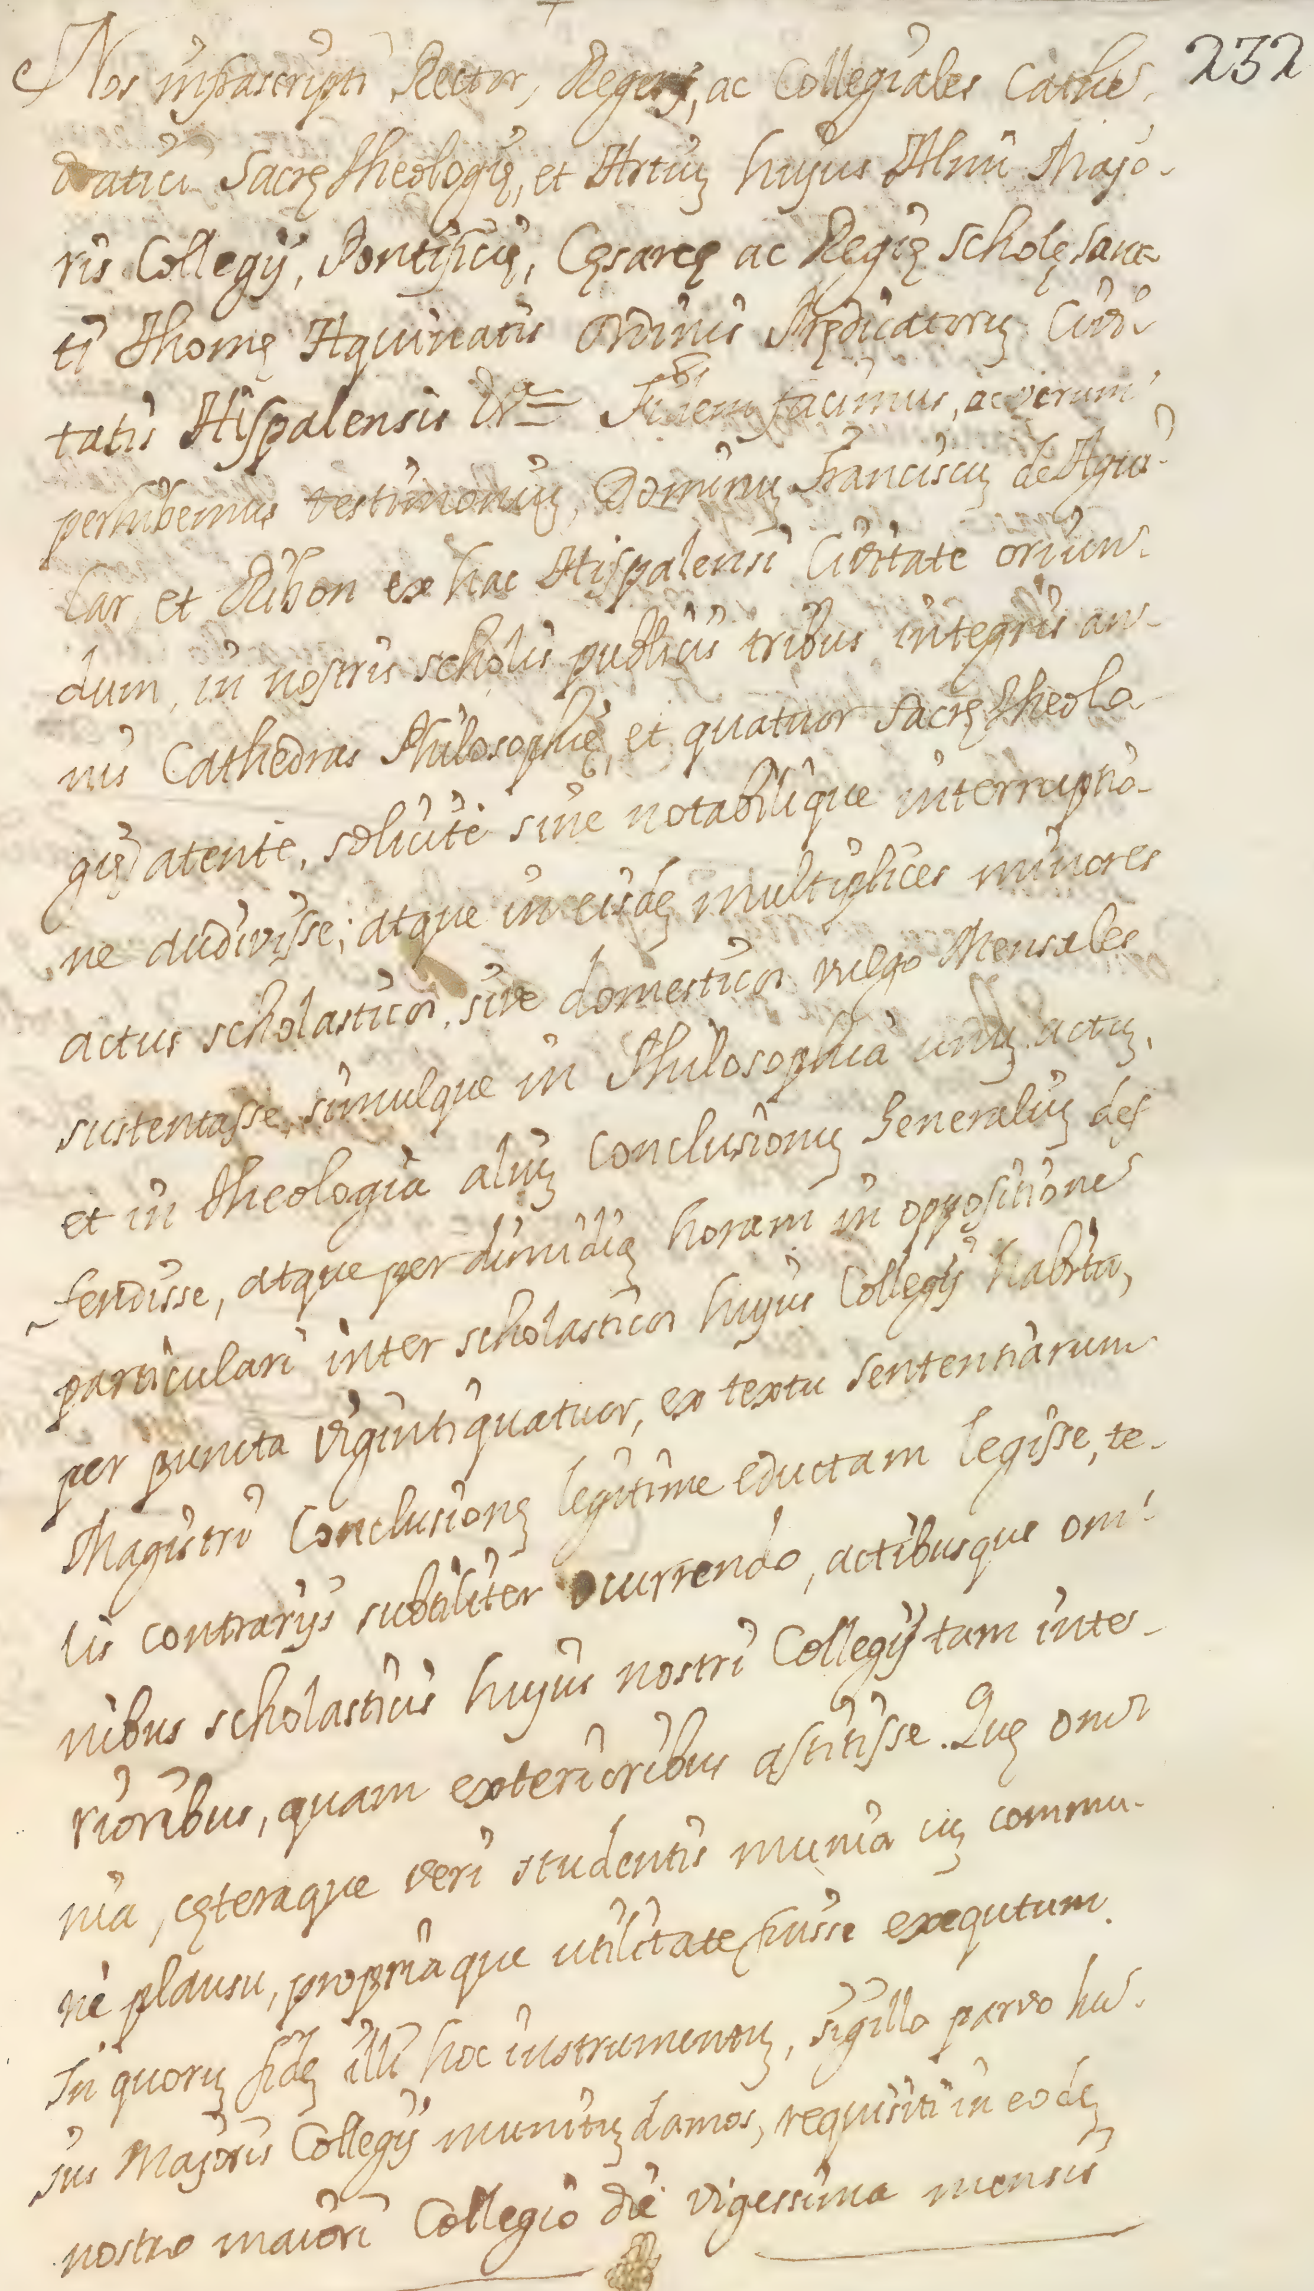 232
Nos infrascripti Rector, Regens, ac Collegiales Cathe-
dratici Sacrę Theologię, et Artiuȝ hujus Almi Majo-
ris Collegij, Pontificię, Cęsareę ac Regię Scholę sanc-
ti Thomę Aquinatis Ordinis Prędicatoruȝ Civi-
tatis Hispalensis &ª= Fidem facimus, ac verum
perhibemus testimoniuȝ, Dominuȝ Franciscuȝ de Agui-
lar et Ribon ex hac Hispalensi Civitate oriun-
dum, in nostris scholis publicis tribus integris an-
nis Cathedras Philosophię, et quatuor Sacrę Theolo-
gię atente, solicite sine notabilique interruptio-
ne audivisse; atque in eisdeȝ multiplices minores
actus scholasticos, sive domesticos vulgo Mensales
sustentasse, simulque in Philosophia unuȝ actuȝ,
et in Theologia aliuȝ Conclusionuȝ Generaliuȝ def-
fendisse, atque per dimidiaȝ horam in oppositione
particulari inter scholasticos hujus Collegij habita,
per puncta vigintiquatuor, ex textu Sententiarum
Magistri Conclusioneȝ legitime eductam legisse, te-
lis contrarijs subtiliter ocurrendo, actibusque om-
nibus scholasticis hujus nostri Collegij tam inte-
rioribus, quam exterioribus astitisse. Quę om-
nia, cęteraque veri studentis munia cuȝ commu-
ne plausu, propriaque utilitate fuisse exequtum.
In quoruȝ fideȝ illi hoc instrumentuȝ, sigillo parvo hu-
jus Majoris Collegij munituȝ damos, requisiti in eodeȝ
nostro maiori Collegio die vigessima mensis